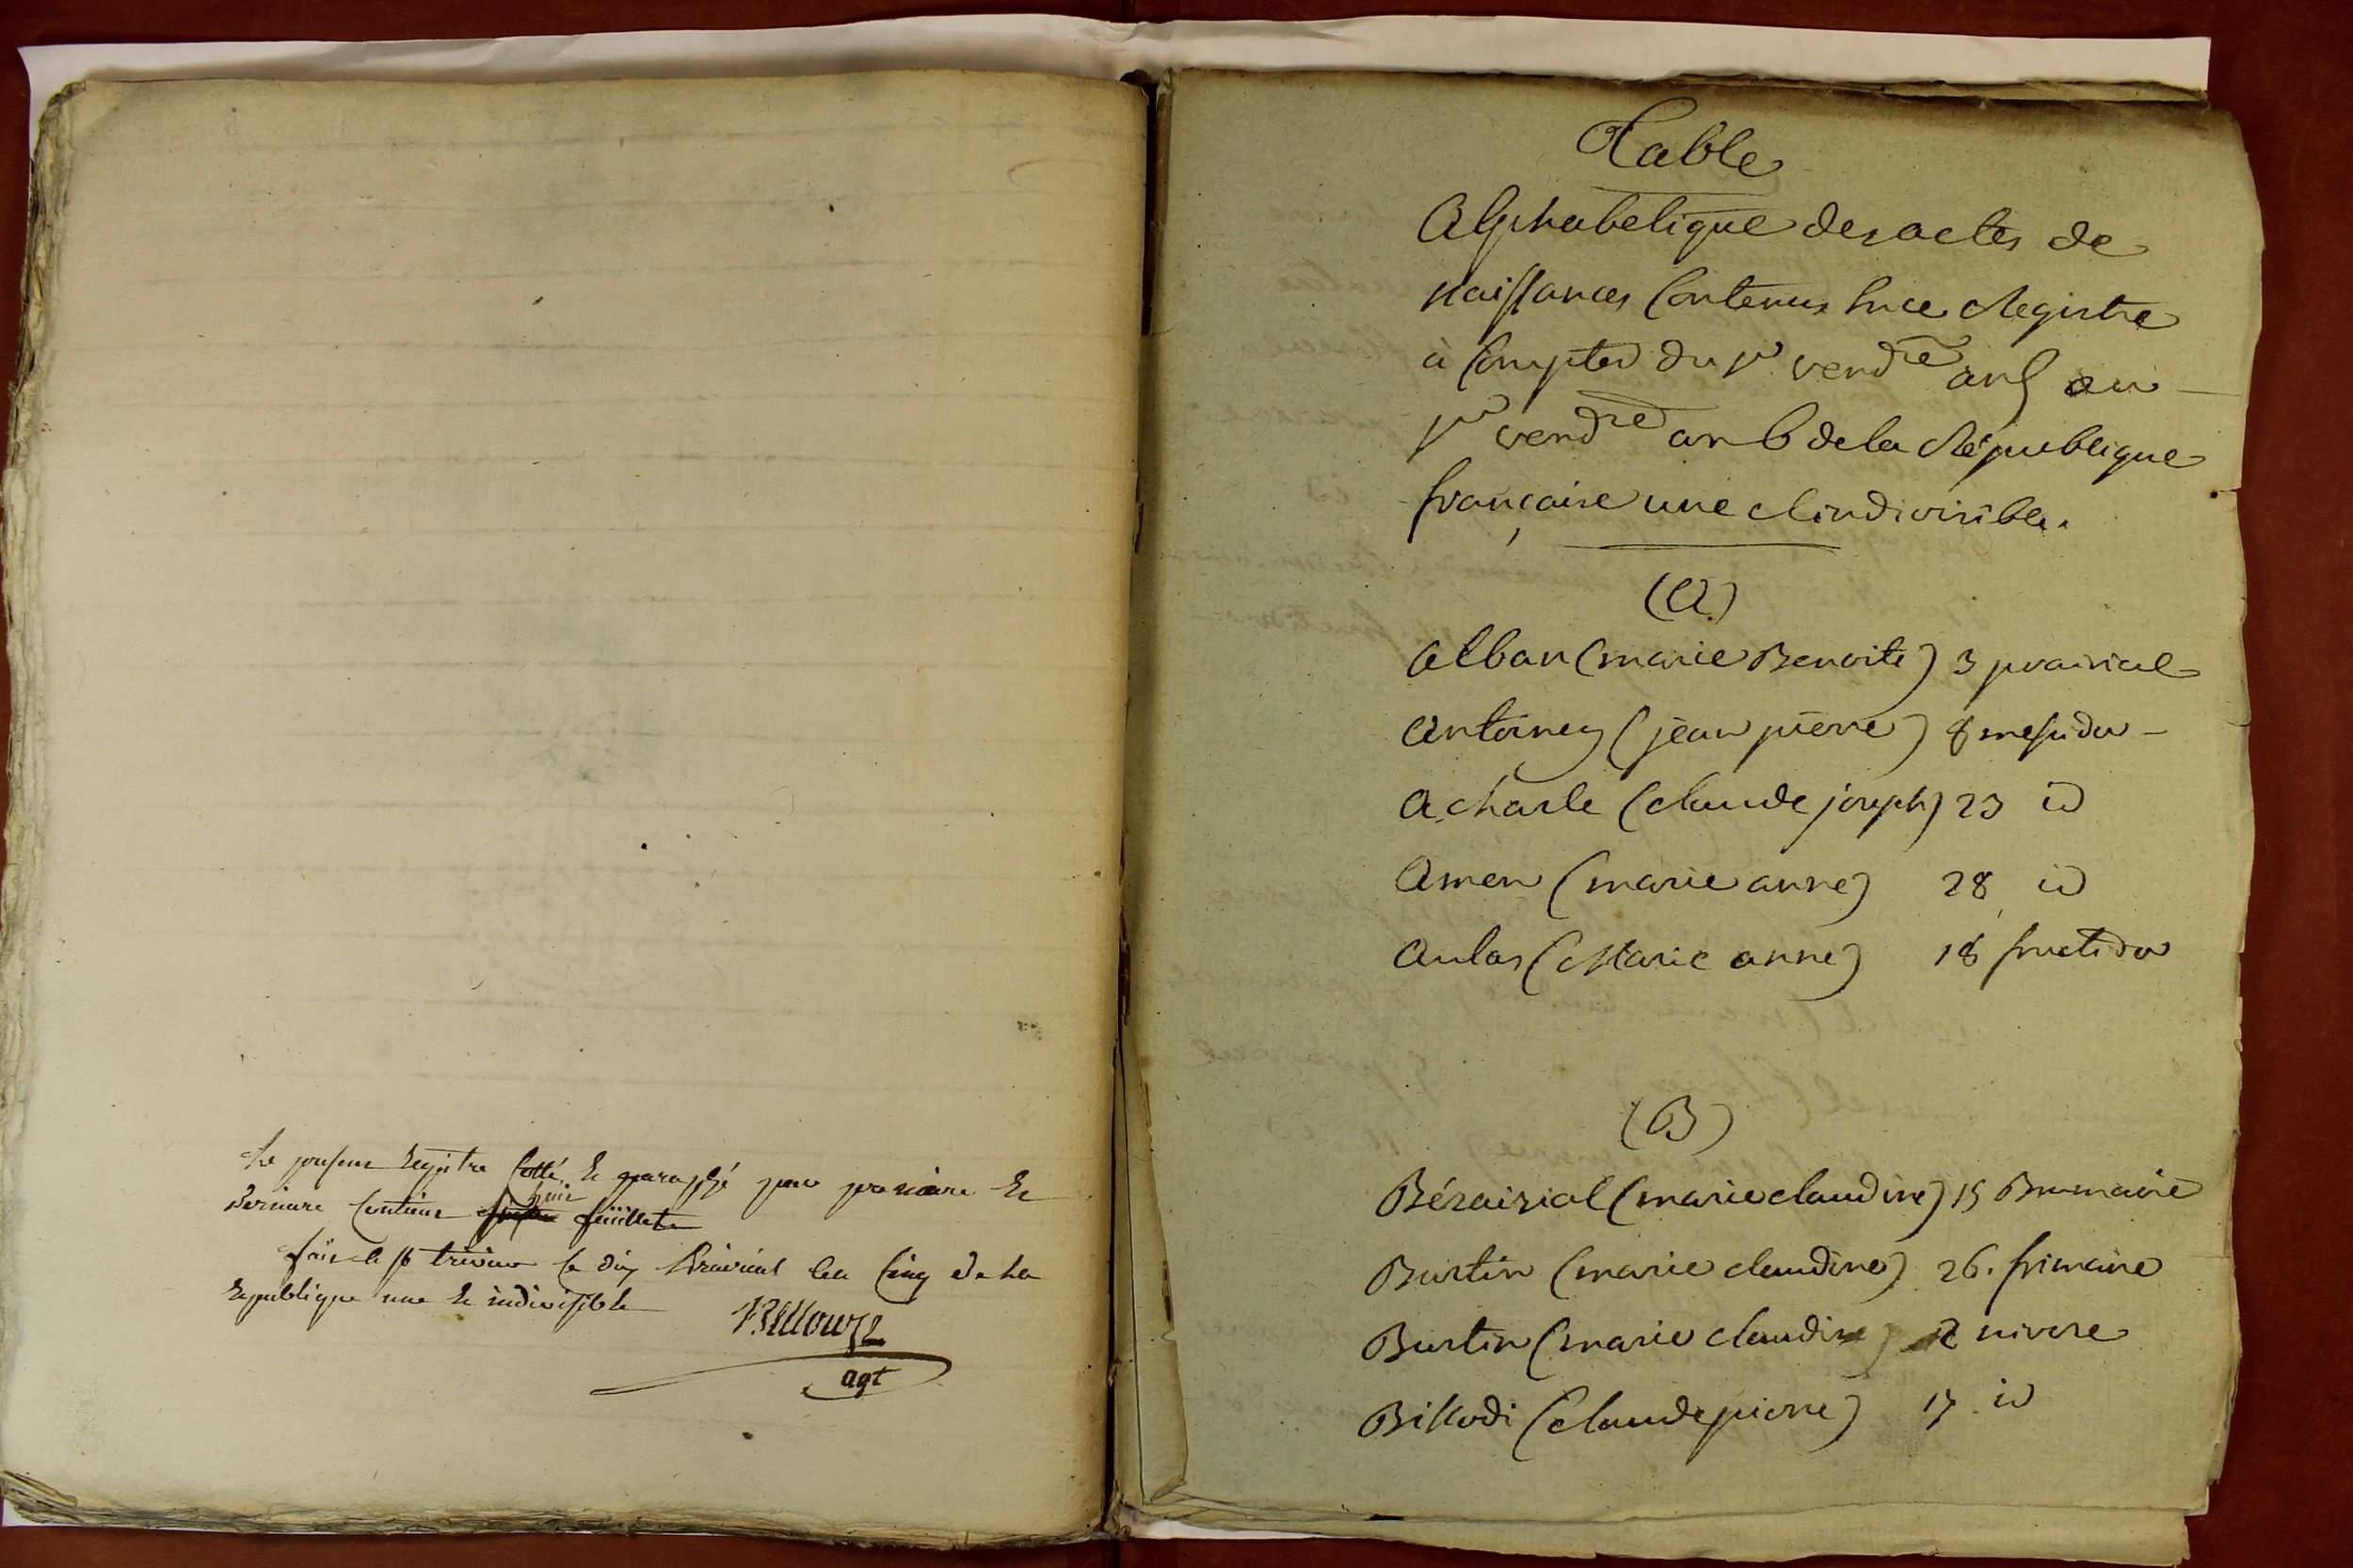 Le present registre cotté et paraphé par premiere et
derniere contient huit feuillets
fait à st trivier le dix Prairial l'an cinq de la
republique une et indivisible
agt
Table
Alphabetique des actes de
naissances Contenus sur ce Registre
à Compter du 1er vendre an 5 au
1er vendre an 6 de la République
française une et indivisible.
(A)
Alban (marie Benoite) 3 prairial
Antoiney (jean pierre) 8 messidor
Acharle (claude joseph) 23 id
Amen (marie anne) 28 id
Aulas (Marie anne) 18 fructidor
(B)
Bézaizial (marie claudine) 15 Brumaire
Burtin (marie claudine) 26. frimaire
Burtin (marie claudine) nivose
Billodi (claude pierre) 17 id